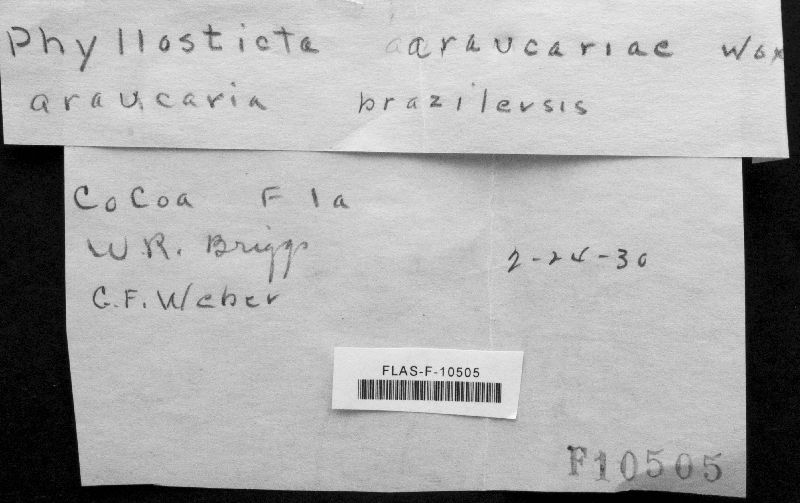 Phyllosticta araucariae Wox
araucaria brazilersis
CoCoa Fla
W.R. Briggs
2-24-30
G.F. Weber
FLAS-F-10505
F10505